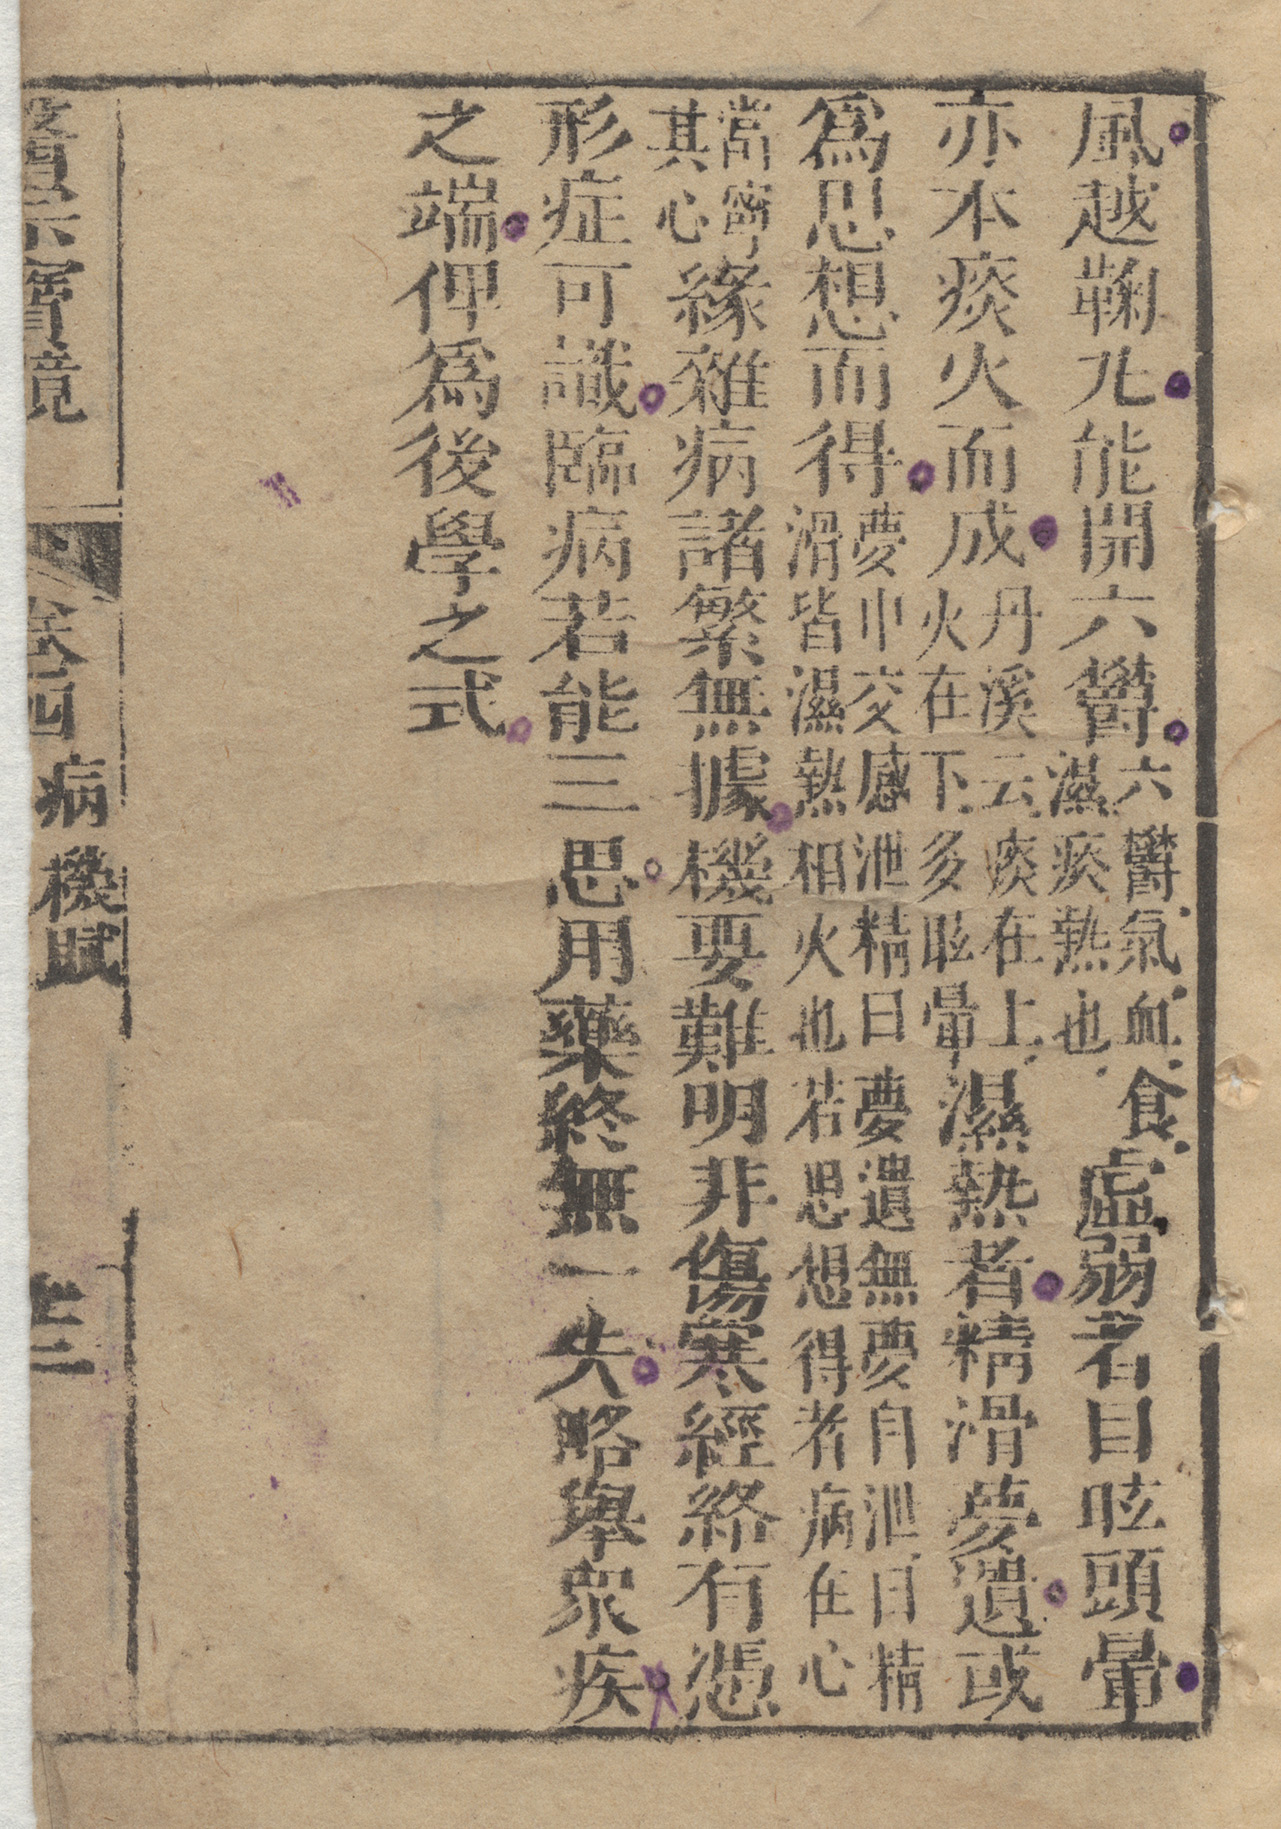 風越鞠凡能開六鬱六鬱氣血食濕痰熱也虛弱者目眩頭暈
亦本痰火而成丹溪云痰在上火在下多眩暈濕熱者精滑夢遺或
爲思想而得夢中交感泄精曰夢遺無夢自泄曰精滑皆濕熱相火也若思想得者病在心
當寧其心緣雜病諸繁無據機要難明非傷寒經絡有憑
形症可識臨病若能三思用藥終無一失略舉衆疾
之端俾爲後學之式
醫宗寶鏡 卷四 病機賦